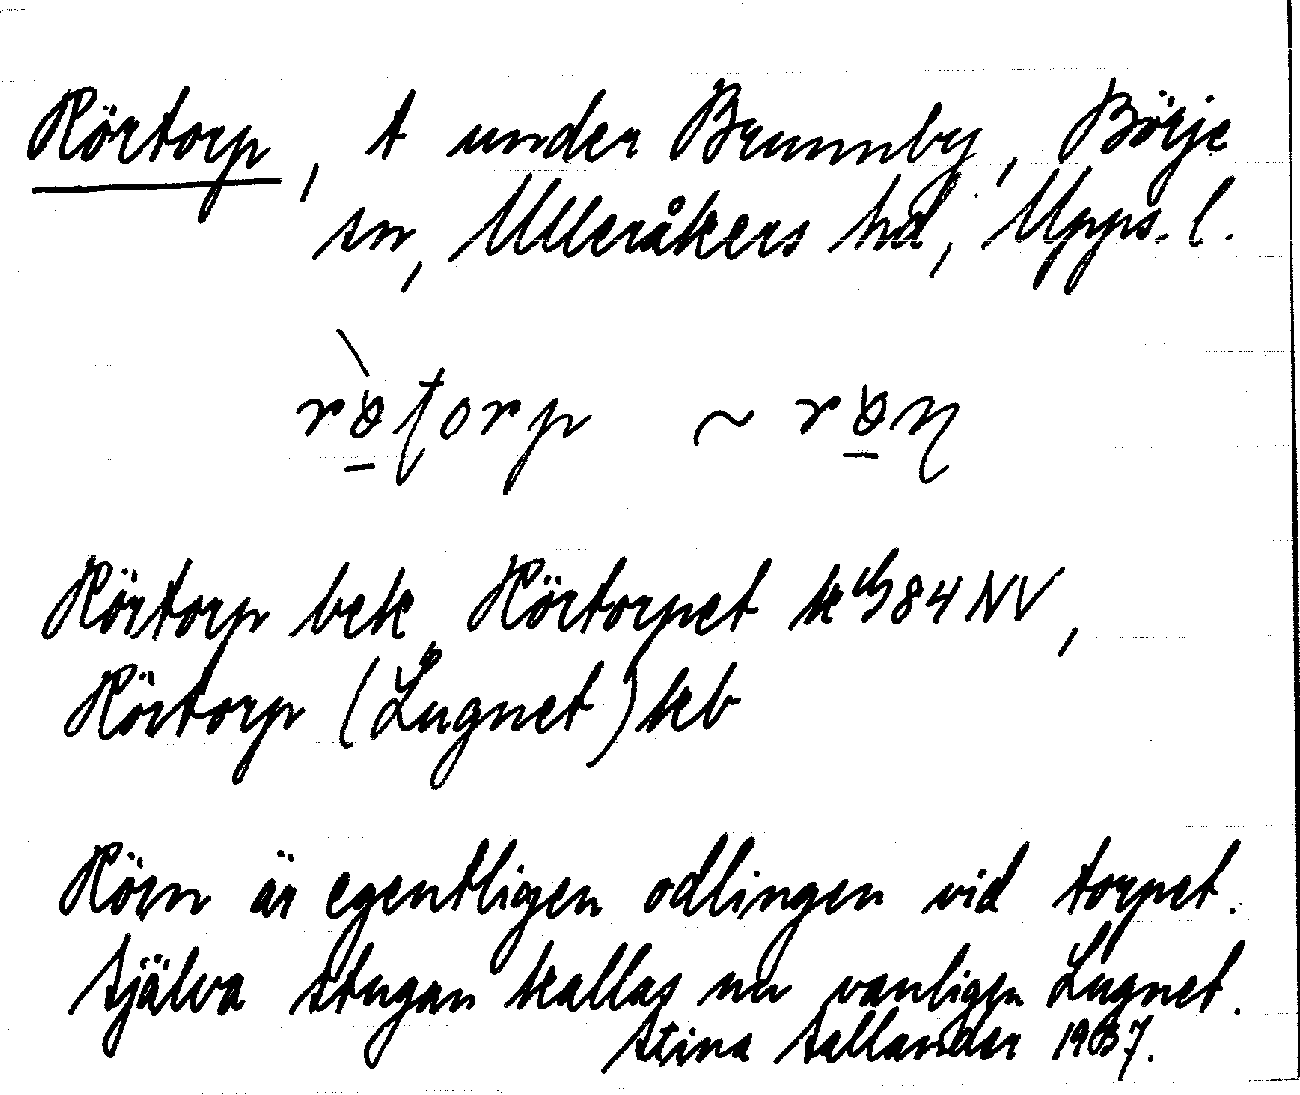 Rörtorp, t under Brunnby, Börje
sn, Ulleråkers hd, Upps. l.
Rörtorp bek. Rörtorpet 84 NV,
Rörtorp (Lugnet) kb
Rörn är egentligen odlingen vid torpet.
Själva stugan kallas nu vanligen Lugnet.
Stina Sallander 1937.